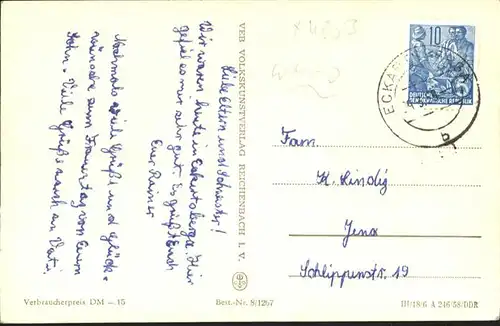 Liebe Eltern und Schwester!
Wir waren heute in Eckartsberga. Hier
gefiel es mir sehr gut. Es grüßt Euch
Euer Rainer
Nochmals viele Grüße und Glück-
wünsche zum Frauentag von Eurem
Sohn. Viele Grüße auch an Vati.
VEB VOLKSKUNSTVERLAG REICHENBACH I. V.
10
DEUTSCHE
DEMOKRATISCHE REPUBLIK
b
Fam.
K. Hindig
Jena
Schlippenstr. 19
Verbraucherpreis DM —.15
Best.-Nr. 8/1267
III/18/6 A 246/58/DDR